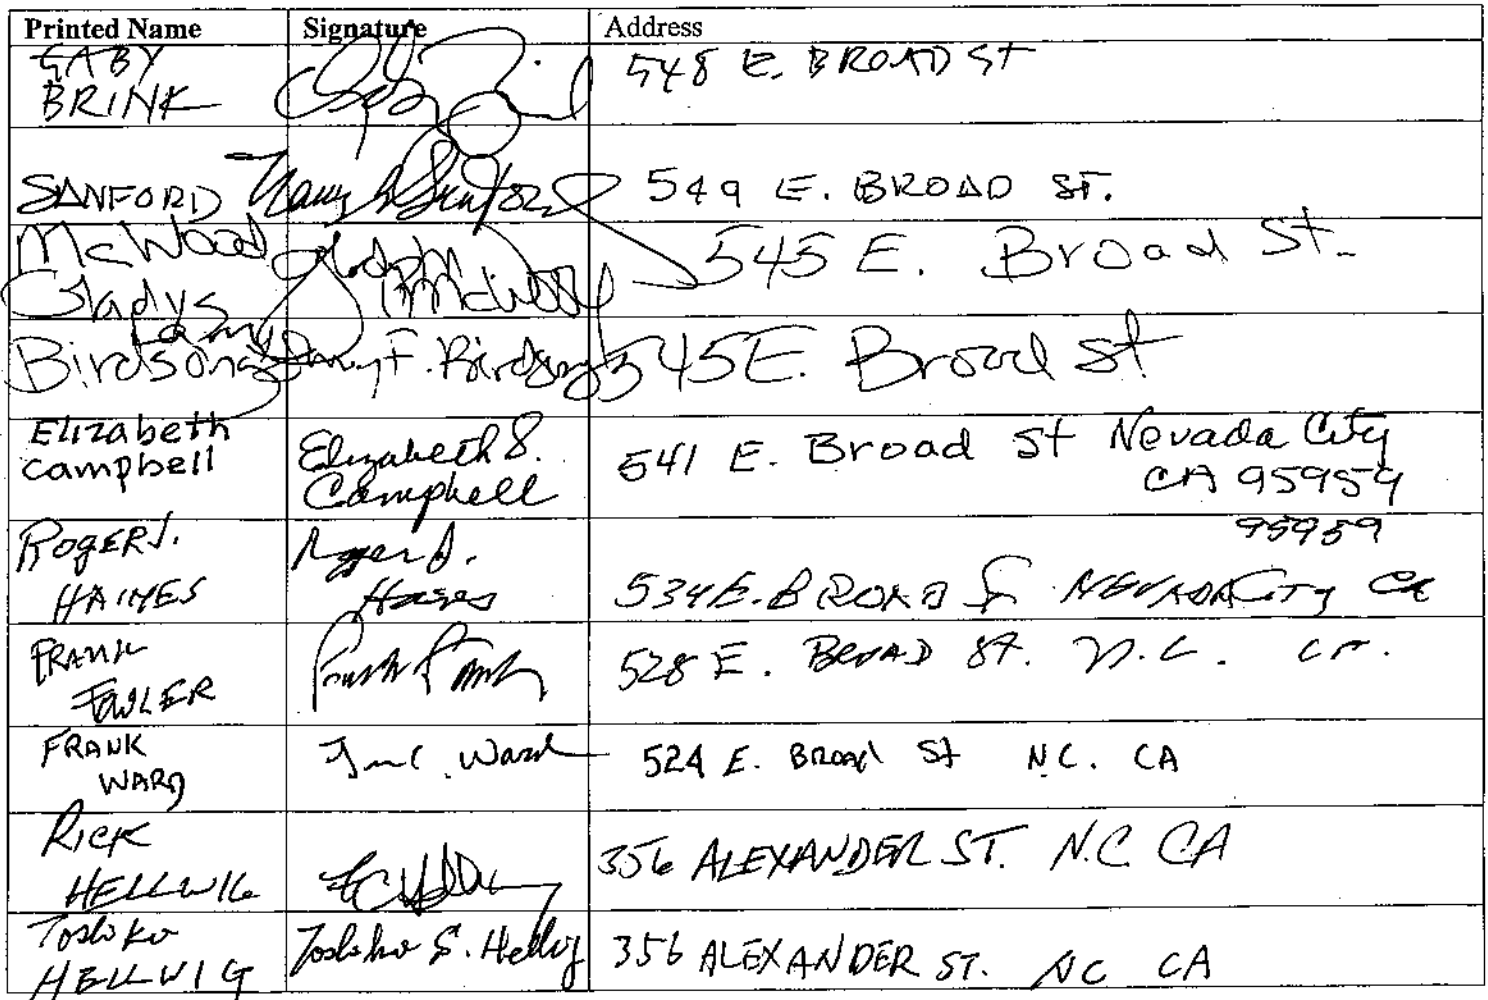 Printed Name Signature Address
GABY
BRINK
548 E. BROAD ST
SANFORD
549 E. BROAD ST.
McWood
Gladys
Gladys McWood
545 E. Broad St.
Birdsong
F. Birdsong
545 E. Broad St
Elizabeth
Campbell
Elizabeth S.
Campbell
541 E. Broad St Nevada City
CA 95959
ROGER J.
HAINES
Roger J.
Haines
95959
534 E. BROAD St NEVADA City Ca
FRANK
FOWLER
528 E. BROAD ST. N.C. CA.
FRANK
WARD
Ward
524 E. BROAD St N.C. CA
RICK
HELLWIG
356 ALEXANDER ST. N.C. CA
Toshiko
HELLWIG
Toshiko S. Hellwig
356 ALEXANDER ST. NC CA